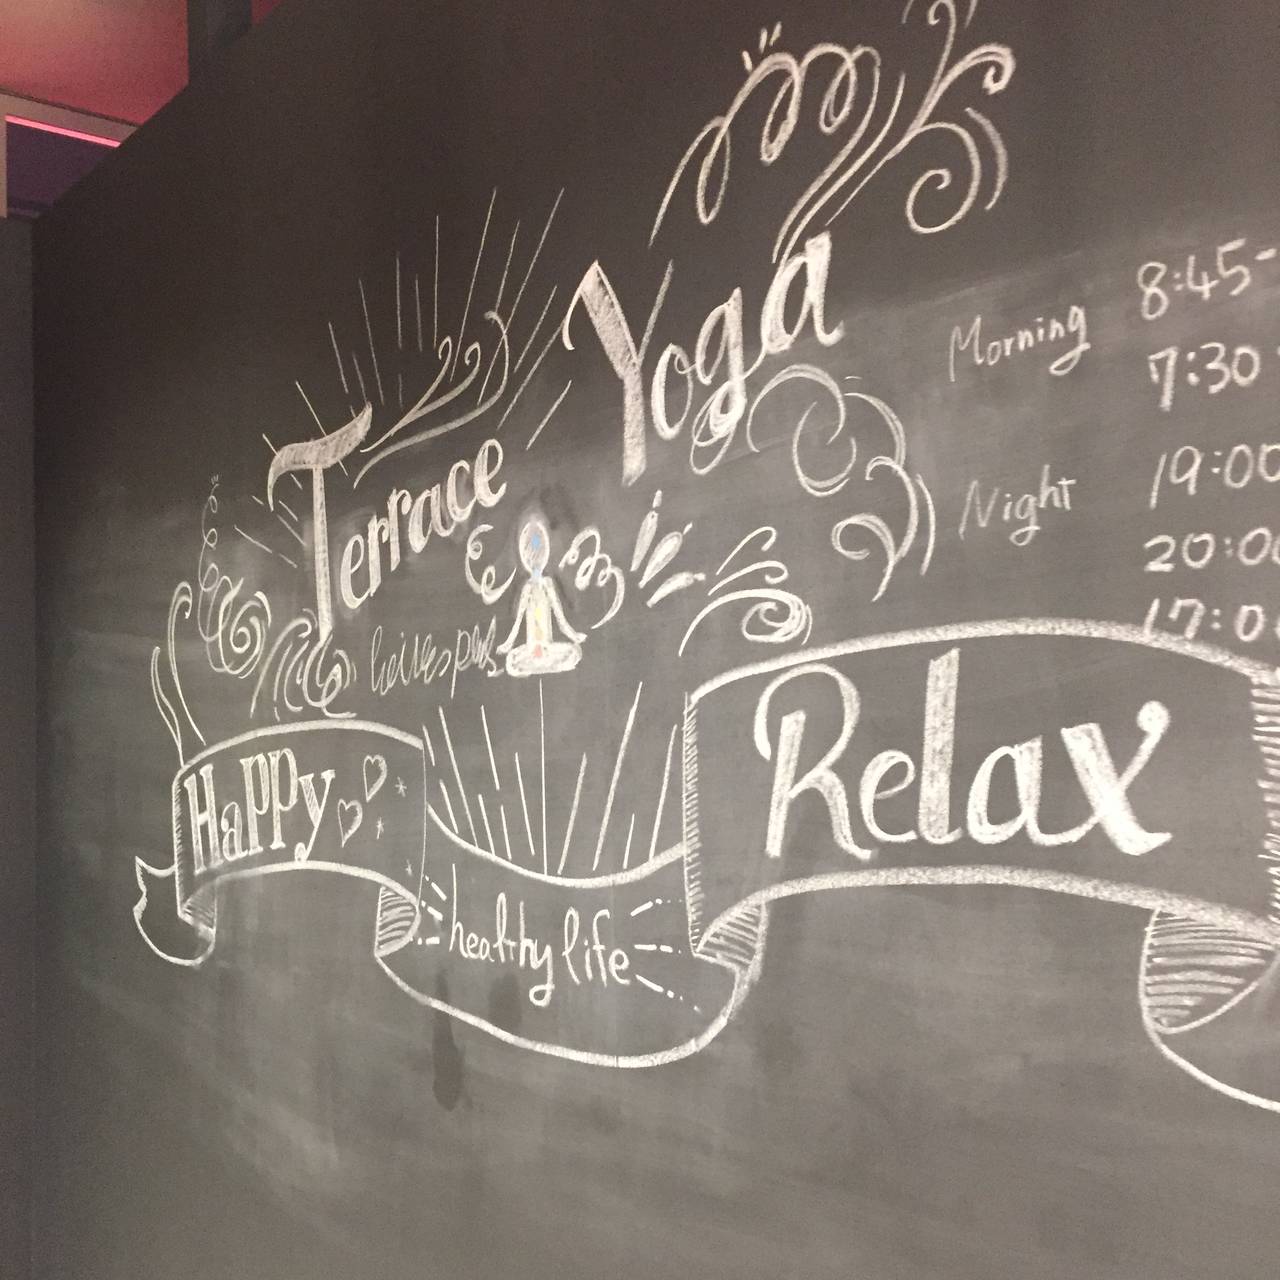 Terrace Yoga
Morning 8:45-
7:30
Night 19:00
20:00
17:0
Happy
healthy life
Relax